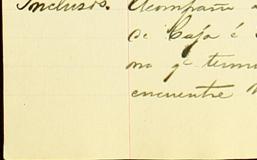 Inclusos. Acompaña
de Caja é
no qe termi
encuentre